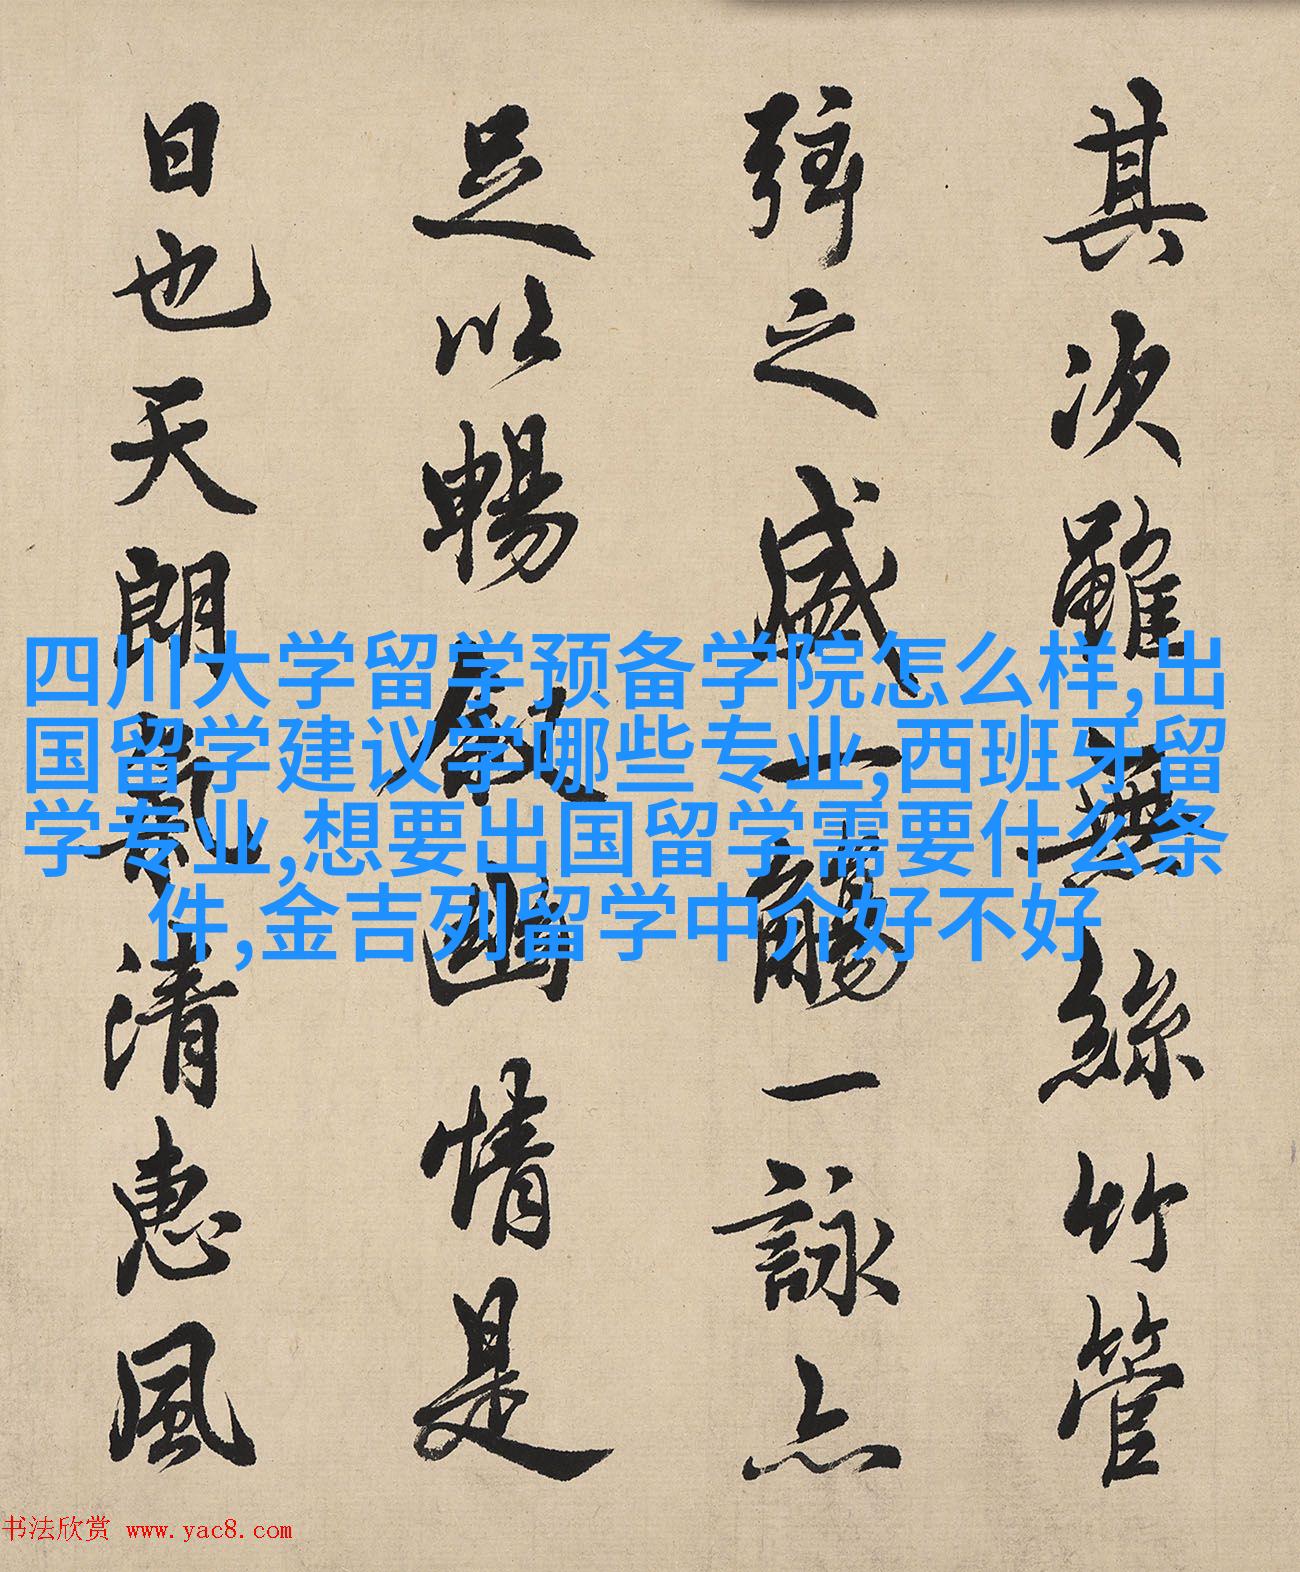 其次雖無絲竹管
弦之盛一觴一詠亦
足以暢敘幽情是
日也天朗氣清惠風
四川大学留学预备学院怎么样,出
国留学建议学哪些专业,西班牙留
学专业,想要出国留学需要什么条
件,金吉列留学中介好不好
书法欣赏 www.yac8.com